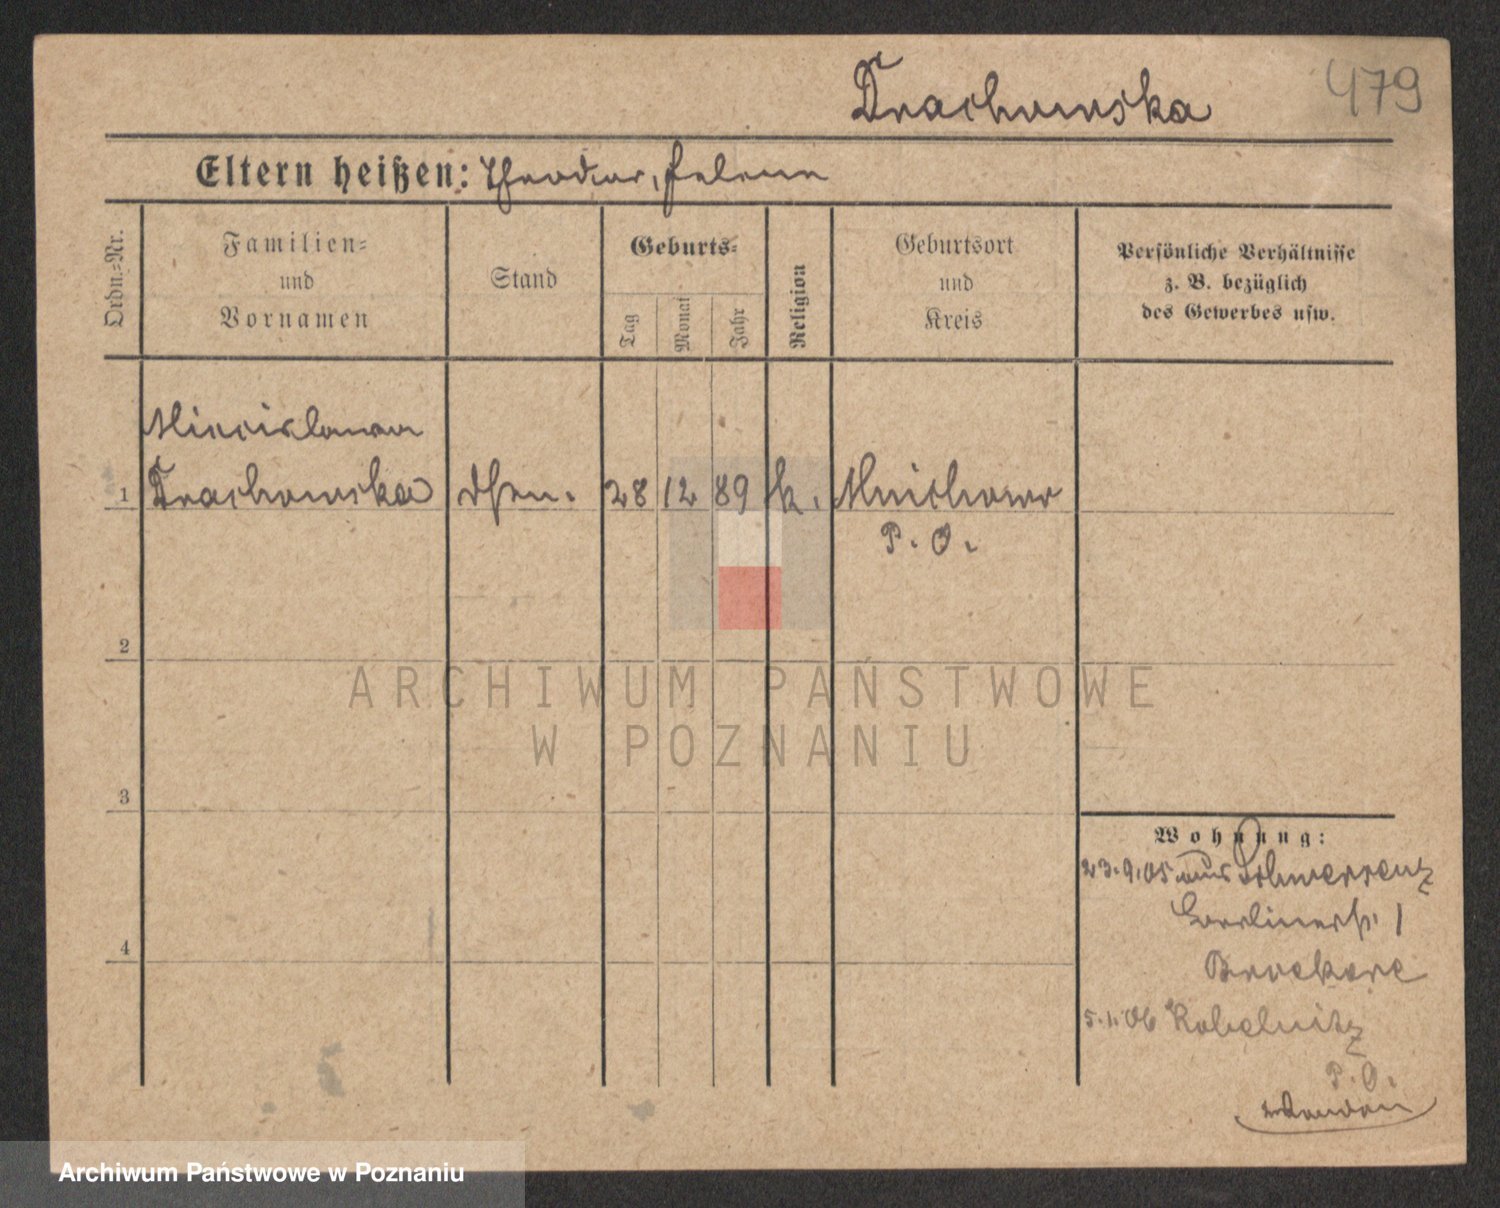 Drachowska
479
Eltern heißen: Theodor, Helene
Ordn.=Nr.
Familien=
und
Vornamen
Stand
Geburts=
Tag
Monat
Jahr
Religion
Geburtsort
und
Kreis
Persönliche Verhältnisse
z. B. bezüglich
des Gewerbes usw.
Miecislawa
1 Drachowska 28 12 89 k. Mnichowo
P. O.
2
ARCHIWUM PAŃSTWOWE
W POZNANIU
3
Wohnung:
23.9.05 aus Schwersenz
Berlinerstr. 1
4
5.1.06 Kobelnitz
P. O.
Archiwum Państwowe w Poznaniu